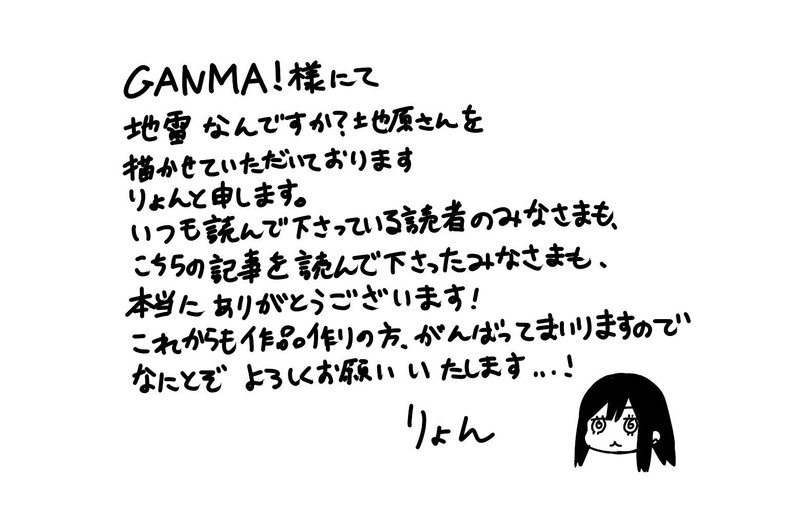 GANMA!様にて
地雷なんですか?地原さんを
描かせていただいております
りょんと申します。
いつも読んで下さっている読者のみなさまも、
こちらの記事を読んで下さったみなさまも、
本当にありがとうございます!
これからも作品作りの方、がんばってまいりますので
なにとぞ よろしくお願い いたします...!
りょん